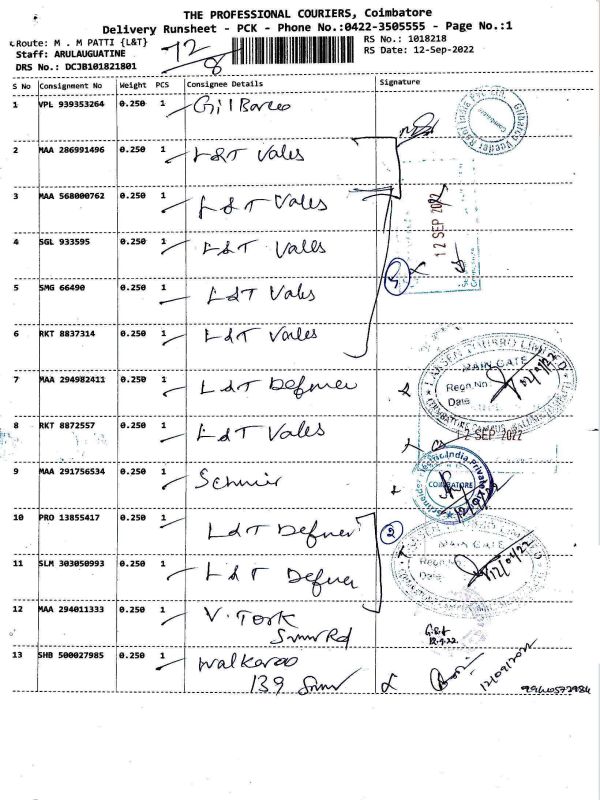 THE PROFESSIONAL COURIERS, Coimbatore
Delivery Runsheet - PCK - Phone No.:0422-3505555 - Page No.:1
Route: M . M PATTI {L&T}
RS No.: 1018218
Staff: ARULAUGUATINE
RS Date: 12-Sep-2022
DRS No.: DCJB101821801
12/8
S No Consignment No Weight PCS Consignee Details Signature
1 VPL 939353264 0.250 1 Gil Barco
2 MAA 286991496 0.250 1 L&T Vales
3 MAA 568000762 0.250 1 L&T Vales
12 SEP 2022
4 SGL 933595 0.250 1 L&T Valles
5
5 SMG 66490 0.250 1 L&T Vales
6 RKT 8837314 0.250 1 L&T Vales
MAIN GATE
Regn.No.
Date
12/09/22
7 MAA 294982411 0.250 1 L&T Defner
8 RKT 8872557 0.250 1 L&T Vales
12 SEP 2022
9 MAA 291756534 0.250 1
COIMBATORE
10 PRO 13855417 0.250 1 L&T Defner
2
MAIN GATE
Regn.No.
Date
12/09/22
11 SLM 303050993 0.250 1 L&T Defner
12 MAA 294011333 0.250 1 V. Tork
12.9.22
13 SHB 500027985 0.250 1 Walkaroo
139
12/09/2022